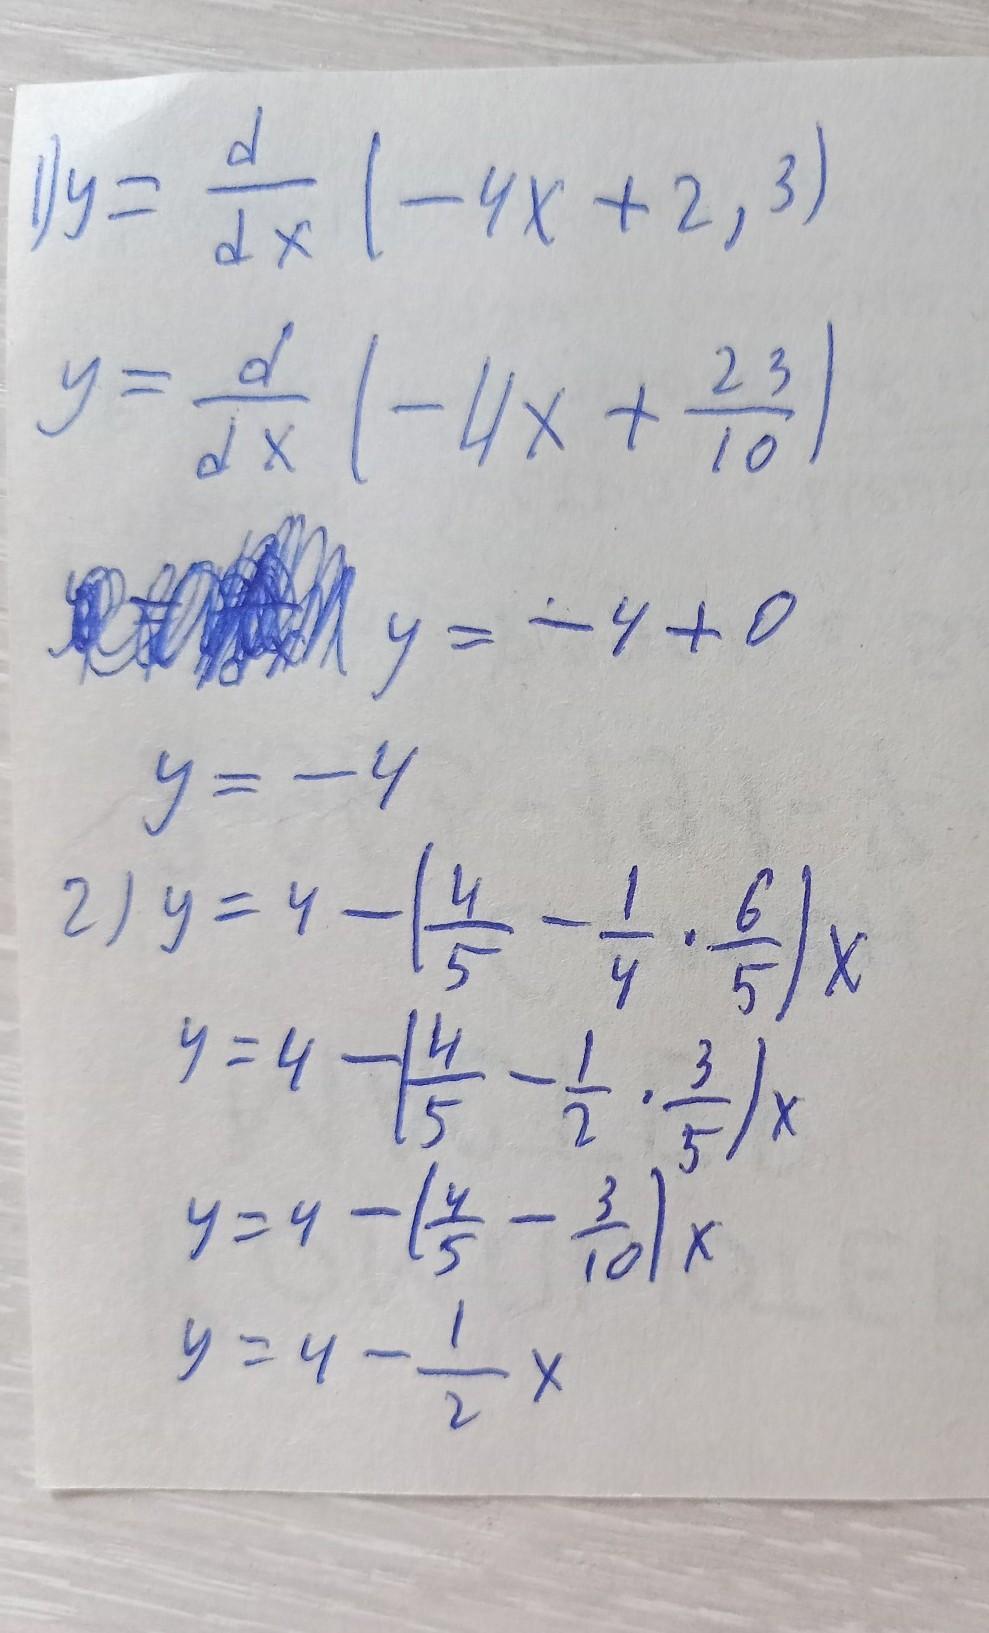 1) y = d/dx (-4x + 2,3)
y = d/dx (-4x + 23/10)
y = -4 + 0
y = -4
2) y = 4 - (4/5 - 1/4 · 6/5)x
y = 4 - (4/5 - 1/2 · 3/5)x
y = 4 - (4/5 - 3/10)x
y = 4 - 1/2 x